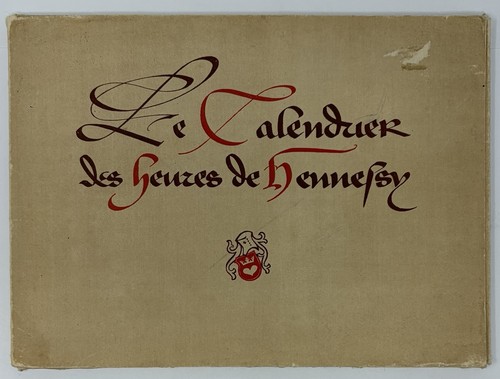 Le Calendrier
des heures de Hennessy